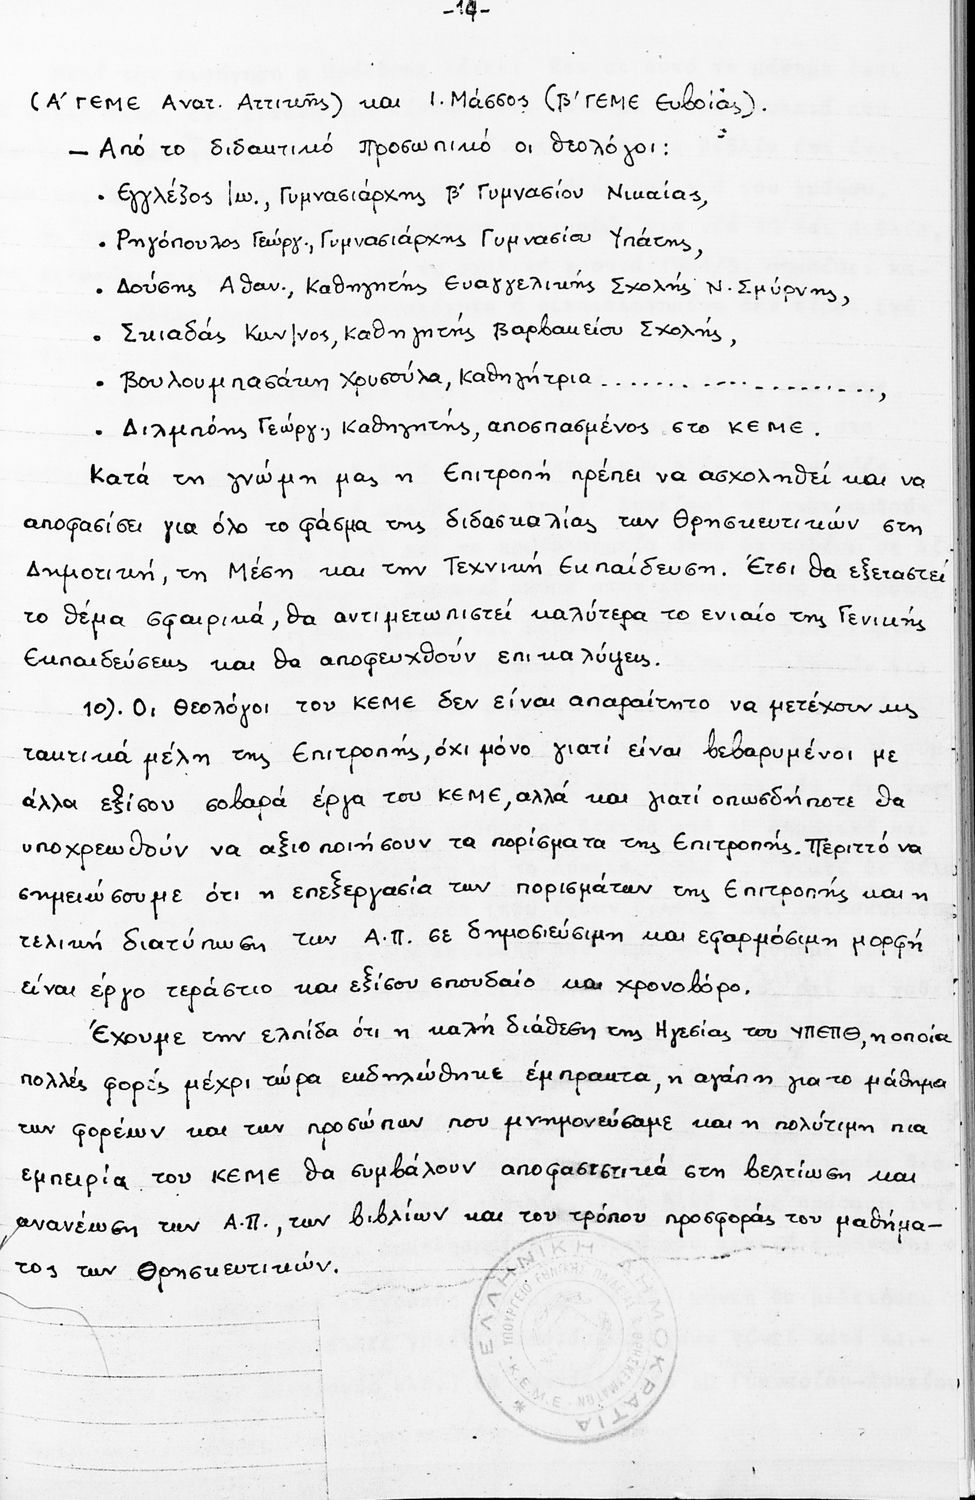 -14-
(Α' ΓΕΜΕ Ανατ. Αττικής) και Ι. Μάσσος (Β' ΓΕΜΕ Ευβοίας).
— Από το διδακτικό προσωπικό οι θεολόγοι:
• Εγγλέζος Ιω., Γυμνασιάρχης Β' Γυμνασίου Νικαίας,
• Ρηγόπουλος Γεώργ., Γυμνασιάρχης Γυμνασίου Υπάτης,
• Δούσης Αθαν., Καθηγητής Ευαγγελικής Σχολής Ν. Σμύρνης,
• Σκιαδάς Κων/νος, Καθηγητής Βαρβακείου Σχολής,
• Βουλουμπασάκη Χρυσούλα, Καθηγήτρια ........................,
• Διλμπόης Γεώργ., Καθηγητής, αποσπασμένος στο ΚΕΜΕ.
Κατά τη γνώμη μας η Επιτροπή πρέπει να ασχοληθεί και να
αποφασίσει για όλο το φάσμα της διδασκαλίας των Θρησκευτικών στη
Δημοτική, τη Μέση και την Τεχνική Εκπαίδευση. Έτσι θα εξεταστεί
το θέμα σφαιρικά, θα αντιμετωπιστεί καλύτερα το ενιαίο της Γενικής
Εκπαιδεύσεως και θα αποφευχθούν επικαλύψεις.
10). Οι Θεολόγοι του ΚΕΜΕ δεν είναι απαραίτητο να μετέχουν ως
τακτικά μέλη της Επιτροπής, όχι μόνο γιατί είναι βεβαρυμένοι με
άλλα εξίσου σοβαρά έργα του ΚΕΜΕ, αλλά και γιατί οπωσδήποτε θα
υποχρεωθούν να αξιοποιήσουν τα πορίσματα της Επιτροπής. Περιττό να
σημειώσουμε ότι η επεξεργασία των πορισμάτων της Επιτροπής και η
τελική διατύπωση των Α.Π. σε δημοσιεύσιμη και εφαρμόσιμη μορφή
είναι έργο τεράστιο και εξίσου σπουδαίο και χρονοβόρο.
Έχουμε την ελπίδα ότι η καλή διάθεση της Ηγεσίας του ΥΠΕΠΘ, η οποία
πολλές φορές μέχρι τώρα εκδηλώθηκε έμπρακτα, η αγάπη για το μάθημα
των φορέων και των προσώπων που μνημονεύσαμε και η πολύτιμη πια
εμπειρία του ΚΕΜΕ θα συμβάλουν αποφασιστικά στη βελτίωση και
ανανέωση των Α.Π., των βιβλίων και του τρόπου προσφοράς του μαθήμα-
τος των Θρησκευτικών.
ΕΛΛΗΝΙΚΗ ΔΗΜΟΚΡΑΤΙΑ
Κ.Ε.Μ.Ε.